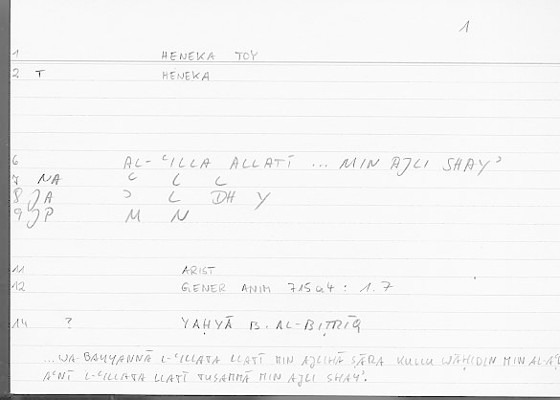 1
1 HENEKA TOY
2 T HENEKA
6 AL-ʿILLA ALLATĪ ... MIN AJLI SHAYʾ
7 NA ʿ L L
8 JA ʾ L DH Y
9 JP M N
11 ARIST
12 GENER ANIM 715a4 : 1.7
14 ? YAḤYĀ B. AL-BIṬRĪQ
...WA-BAYYANNĀ L-ʿILLATA LLATĪ MIN AJLIHĀ ṢĀRA KULLU WĀḤIDIN MIN AL-
AʿNĪ L-ʿILLATA LLATĪ TUSAMMĀ MIN AJLI SHAYʾ.